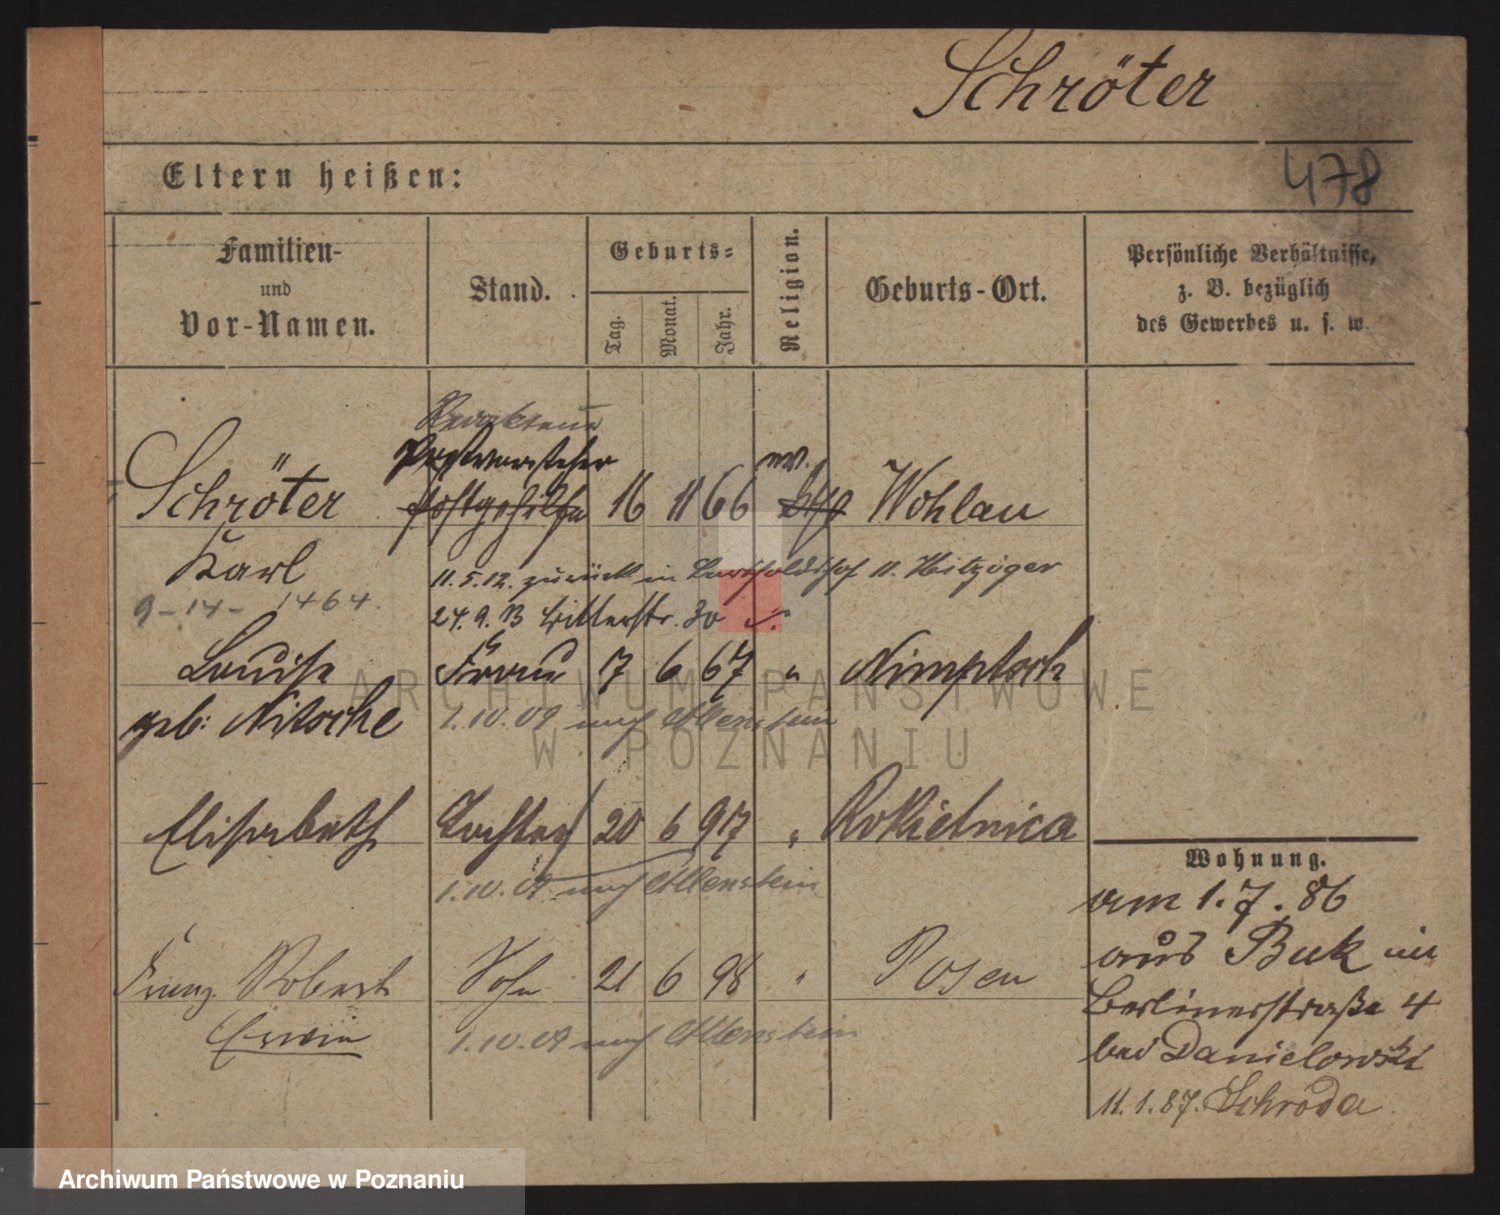 Schröter
478
Eltern heißen:
Familien-
und
Vor-Namen.
Stand.
Geburts-
Tag.
Monat.
Jahr.
Religion.
Geburts-Ort.
Persönliche Verhältnisse,
z. B. bezüglich
des Gewerbes u. s. w.
Postvorsteher
Schröter Postgehilfe 16 11 66 ev. Wohlau
Karl
11.5.12. zurück in
9-14- 1464.
24.9.13 Ritterstr. 30
Louise Frau 17 6 67 " Nimptsch
geb: Nitschke 1.10.09 nach Allenstein
Elisabeth Tochter 20 6 97 " Rokietnica
1.10.09 nach Allenstein
Franz Robert Sohn 21 6 98 " Posen
Erwin
1.10.09 nach Allenstein
Wohnung.
am 1.7.86
aus Buk in
Berlinerstraße 4
bei Danielowski
11.1.87. Schroda
ARCHIWUM PAŃSTWOWE
W POZNANIU
Archiwum Państwowe w Poznaniu